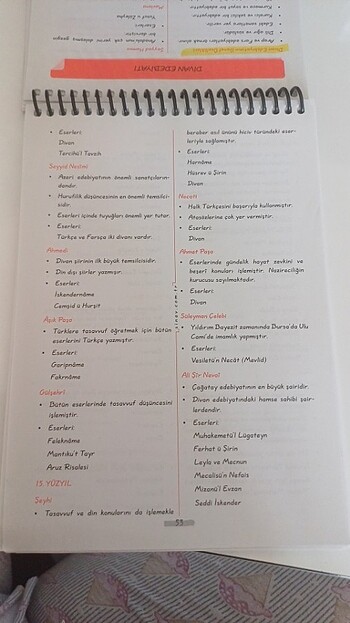 Divan
DİVAN EDEBİYATI
• Eserleri:
Divan
Terciha'i Tevcih
Seyyid Nesimi
• Azeri edebiyatının önemli sanatçıların-
dandır.
• Hurufilik düşüncesinin en önemli temsilci-
sidir.
• Eserleri içinde tuyuğları önemli yer tutar.
• Eserleri:
Türkçe ve Farsça iki divanı vardır.
Ahmedi
• Divan şiirinin ilk büyük temsilcisidir.
• Din dışı şiirler yazmıştır.
• Eserleri:
İskendernâme
Cemşid ü Hurşit
Âşık Paşa
• Türklere tasavvuf öğretmek için bütün
eserlerini Türkçe yazmıştır.
• Eserleri:
Garipnâme
Fakrnâme
Gülşehri
• Bütün eserlerinde tasavvuf düşüncesini
işlemiştir.
• Eserleri:
Feleknâme
Mantıku't Tayr
Aruz Risalesi
15. YÜZYIL
Şeyhi
• Tasavvuf ve din konularını da işlemekle
beraber asıl ününü hiciv türündeki eser-
leriyle sağlamıştır.
• Eserleri:
Harnâme
Hüsrev ü Şirin
Divan
Necati
• Halk Türkçesini başarıyla kullanmıştır.
• Atasözlerine çok yer vermiştir.
• Eserleri:
Divan
Ahmet Paşa
• Eserlerinde gündelik hayat sevkini ve
beşerî konuları işlemiştir. Nazireciliğin
kurucusu sayılmaktadır.
• Eserleri:
Divan
Süleyman Çelebi
• Yıldırım Bayezit zamanında Bursa'da Ulu
Cami'de imamlık yapmıştır.
• Eserleri:
Vesiletü'n Necât (Mevlid)
Ali Şir Nevaî
• Çağatay edebiyatının en büyük şairidir.
• Divan edebiyatındaki hamse sahibi şair-
lerdendir.
• Eserleri:
Muhakemetü'l Lügateyn
Ferhat ü Şirin
Leyla ve Mecnun
Mecalisü'n Nefais
Mizanü'l Evzan
Seddi İskender
53